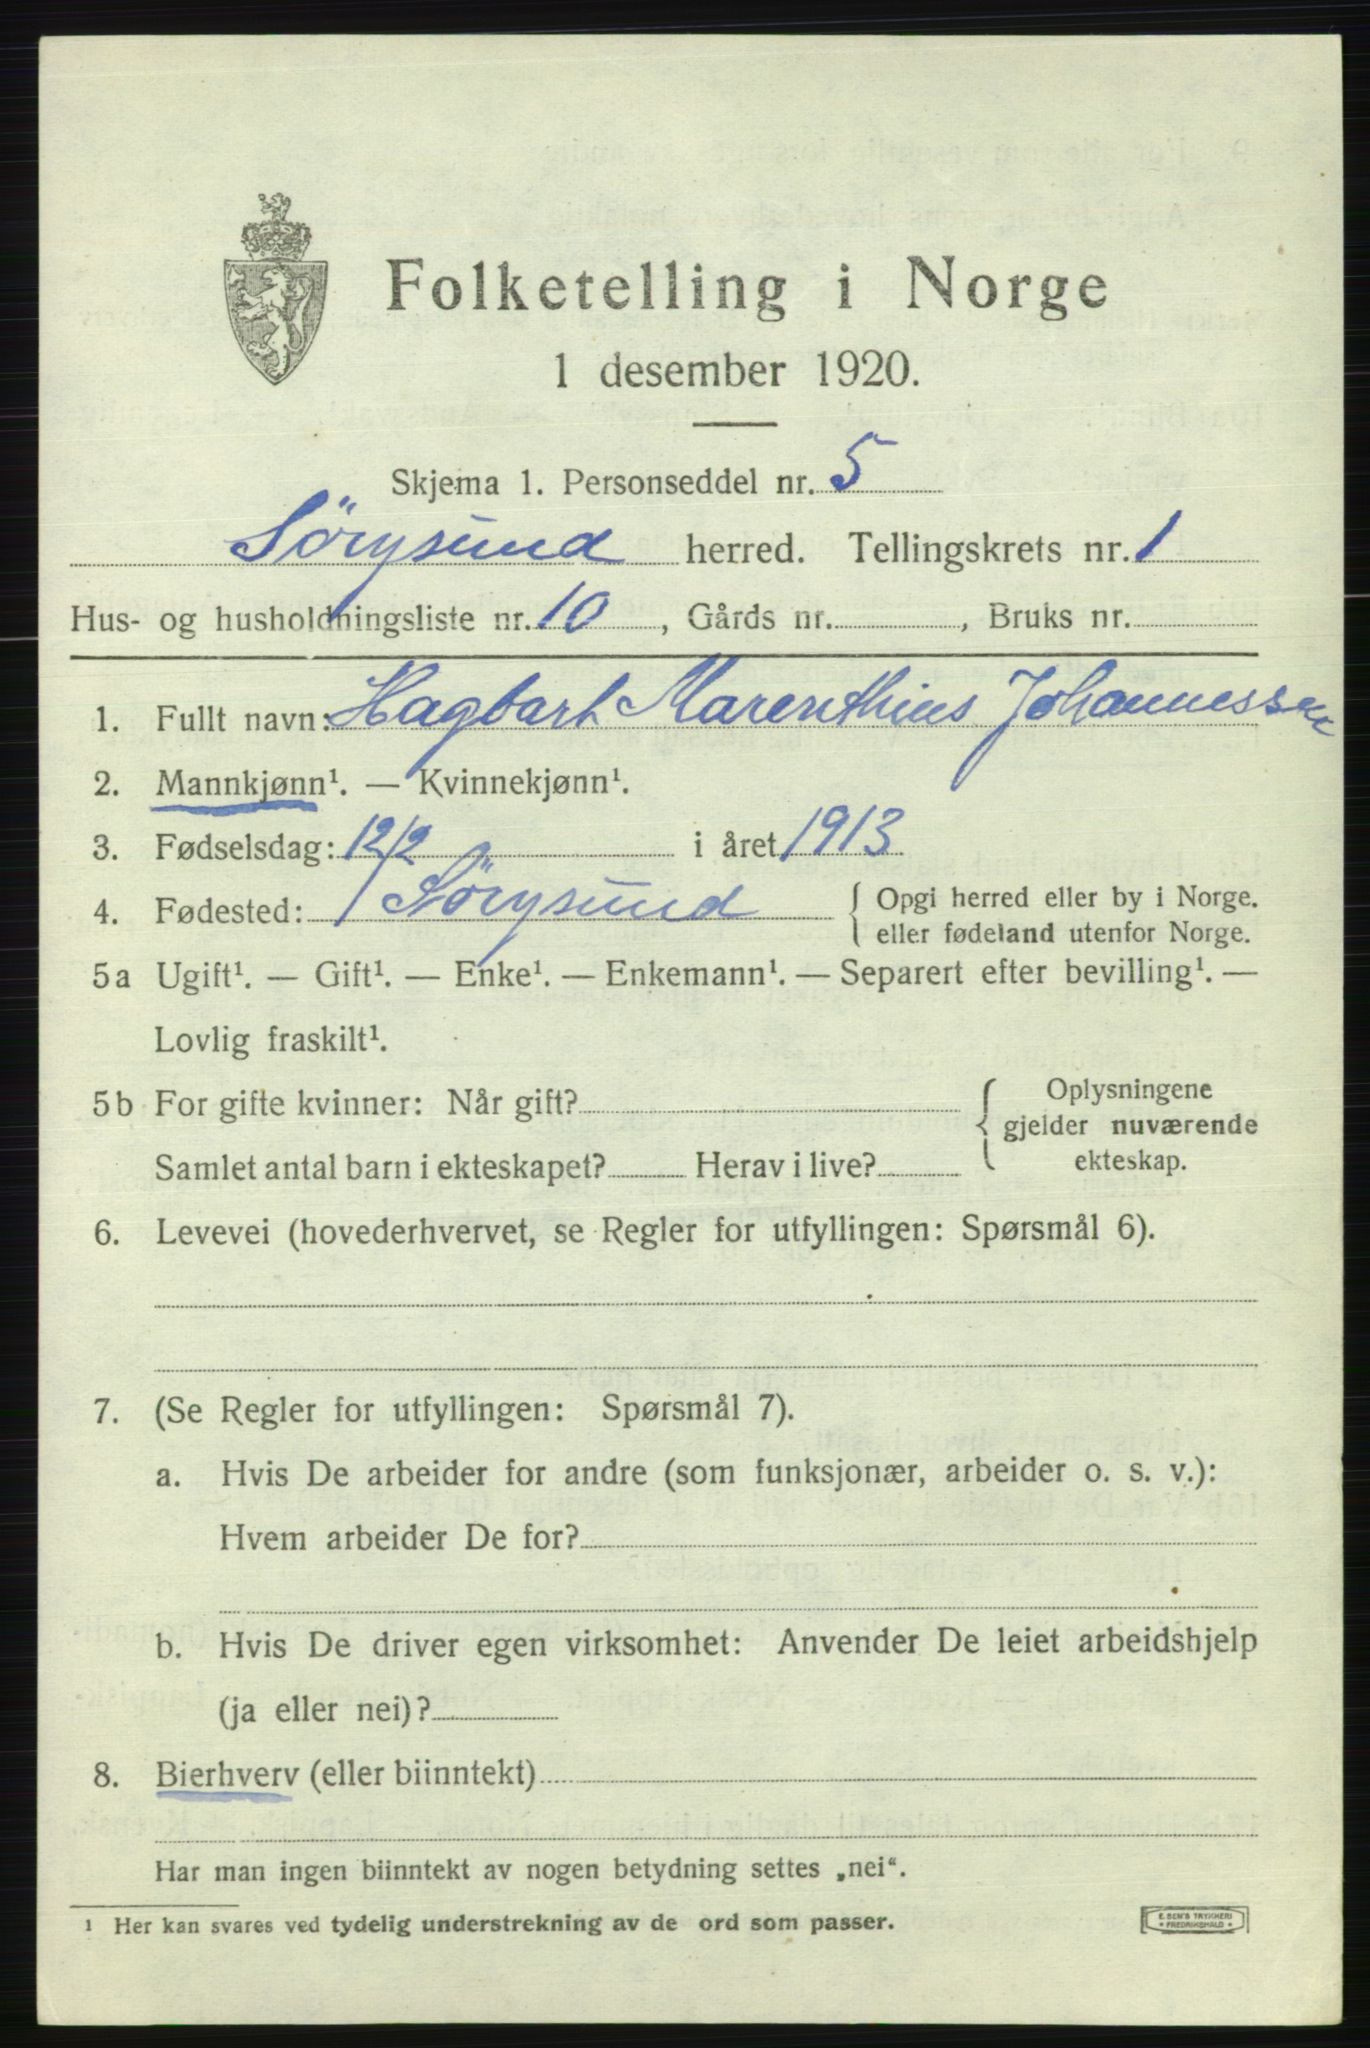 Folketelling i Norge
1 desember 1920.
Skjema 1. Personseddel nr. 5
Sörøysund herred. Tellingskrets nr. 1
Hus- og husholdningsliste nr. 10, Gårds nr. , Bruks nr.
1. Fullt navn: Hagbart Marenthius Johannessen
2. Mannkjønn¹. — Kvinnekjønn¹.
3. Fødselsdag: 12/2 i året 1913
4. Fødested: Sörøysund { Opgi herred eller by i Norge.
eller fødeland utenfor Norge.
5a Ugift¹. — Gift¹. — Enke¹. — Enkemann¹. — Separert efter bevilling¹. —
Lovlig fraskilt¹.
5b For gifte kvinner: Når gift? { Oplysningene
gjelder nuværende
Samlet antal barn i ekteskapet? Herav i live? ekteskap.
6. Levevei (hovederhvervet, se Regler for utfyllingen: Spørsmål 6).
7. (Se Regler for utfyllingen: Spørsmål 7).
a. Hvis De arbeider for andre (som funksjonær, arbeider o. s. v.):
Hvem arbeider De for?
b. Hvis De driver egen virksomhet: Anvender De leiet arbeidshjelp
(ja eller nei)?
8. Bierhverv (eller biinntekt)
Har man ingen biinntekt av nogen betydning settes „nei“.
¹ Her kan svares ved tydelig understrekning av de ord som passer.
E. SEM'S TRYKKERI
FREDRIKSHALD